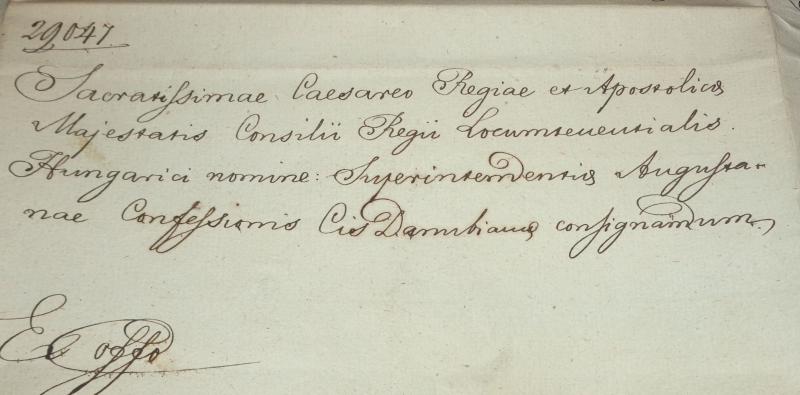 29047.
Sacratissimae Caesareo Regiae et Apostolicae
Majestatis Consilii Regii Locumtenentialis.
Hungarici nomine: Superintendentiae Augusta-
nae Confessionis Cis Danubianae consignandum.
Ex offo